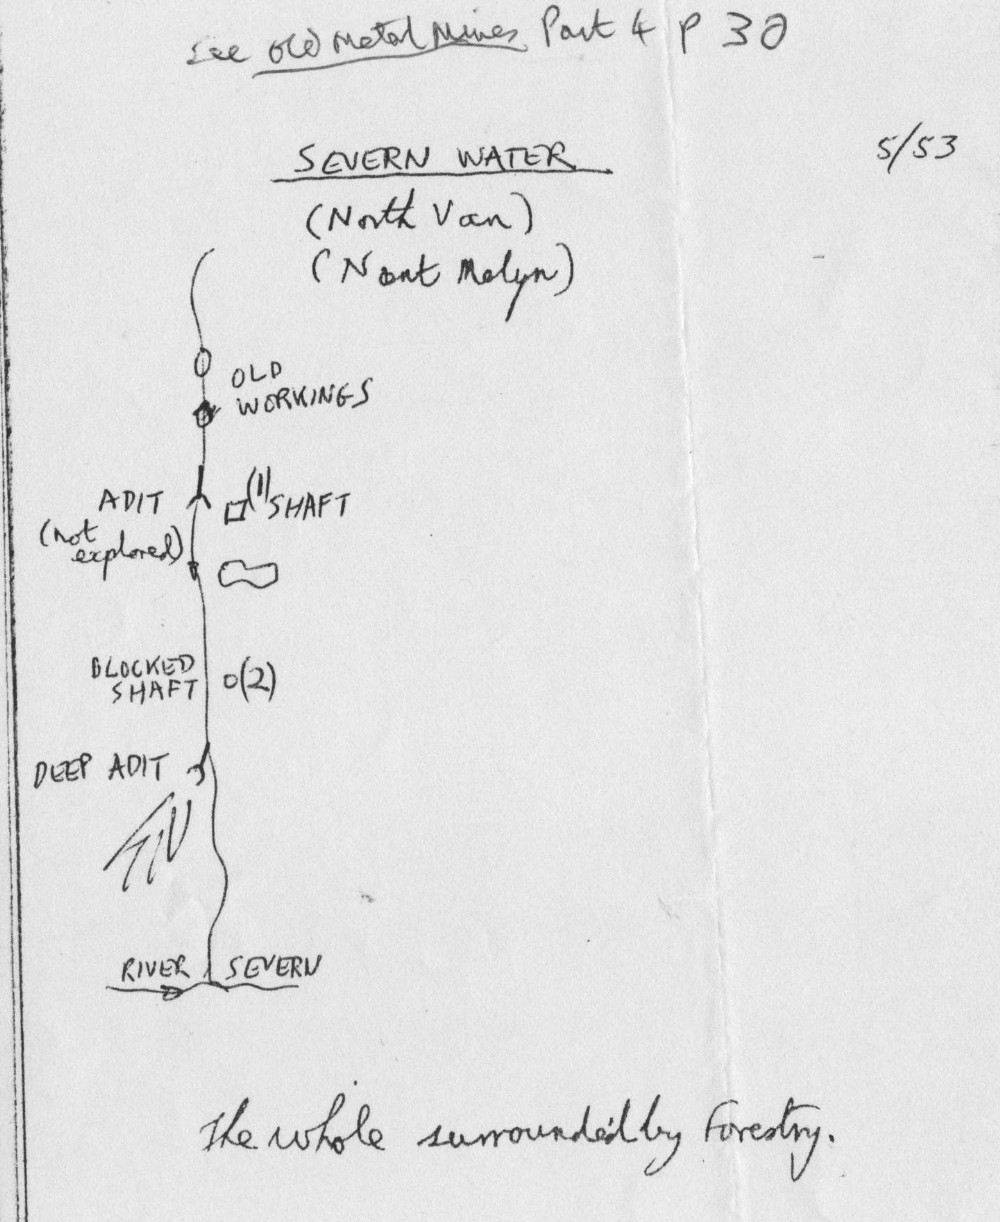 See Old Metal Mines Part 4 p 30
5/53
SEVERN WATER
(North Van)
(Nant Melyn)
OLD
WORKINGS
ADIT
(not
explored)
(1)
SHAFT
BLOCKED
SHAFT
(2)
DEEP ADIT
RIVER SEVERN
The whole surrounded by Forestry.